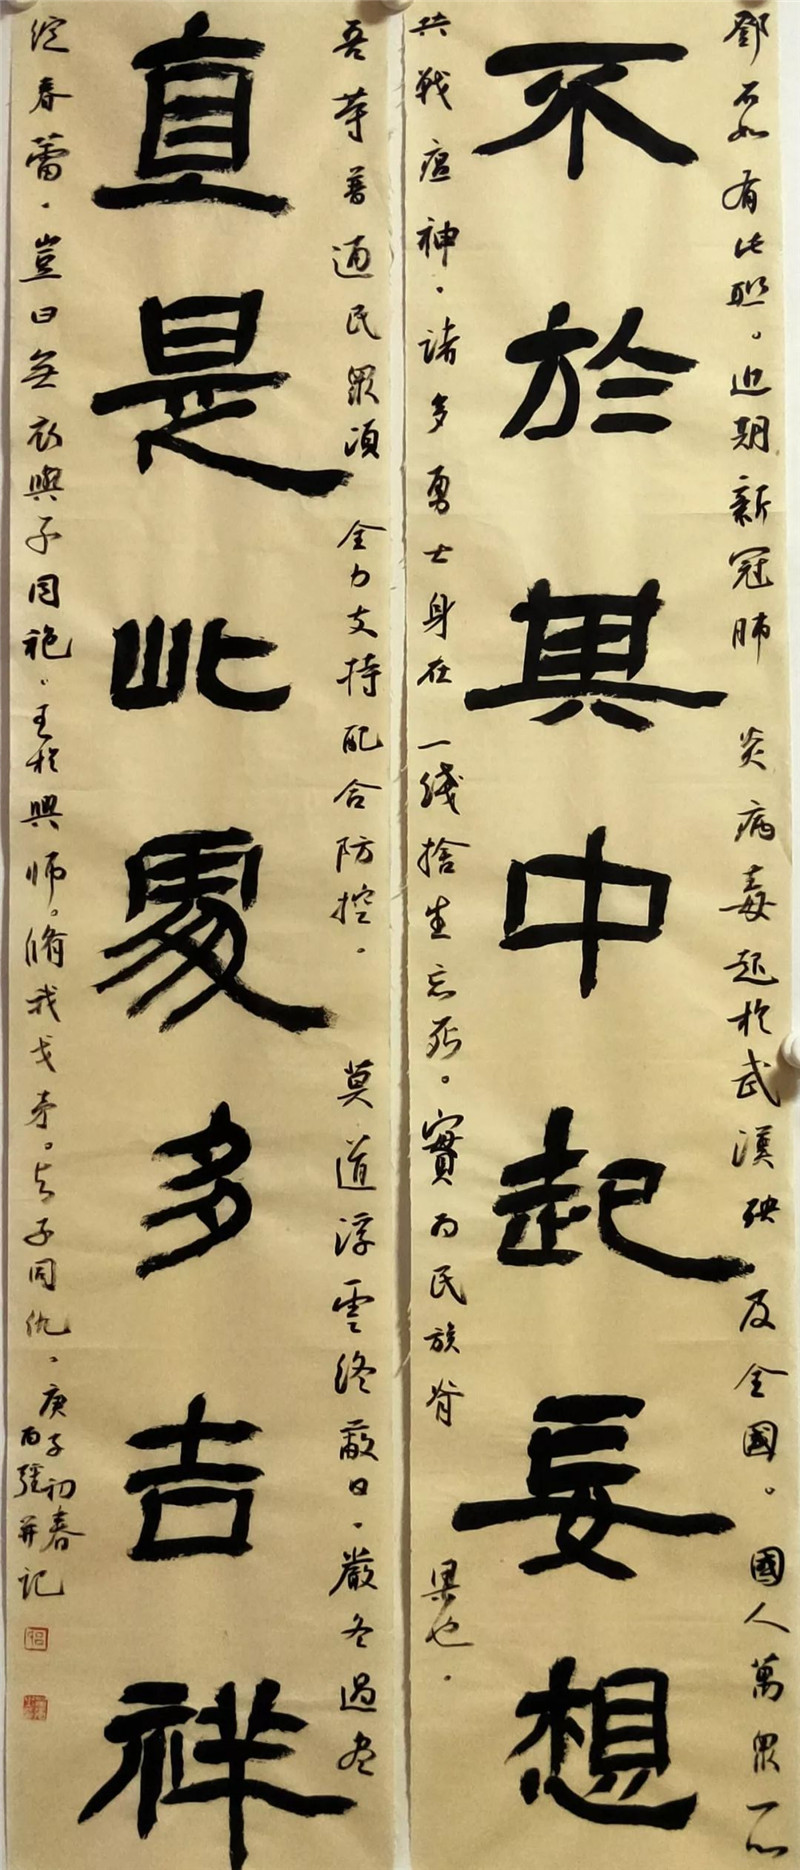 鄧石如有此聯。近期新冠肺炎病毒起於武漢殃及全國。國人萬眾一心
不於其中起妄想
共戰瘟神。諸多勇士身在一綫捨生忘死。實為民族脊梁也。
吾等普通民眾須全力支持配合防控。莫道浮雲終蔽日。嚴冬過盡
直是此處多吉祥
綻春蕾。豈曰無衣與子同袍。王於興師。脩我戈矛。與子同仇。庚子初春
西疆并記